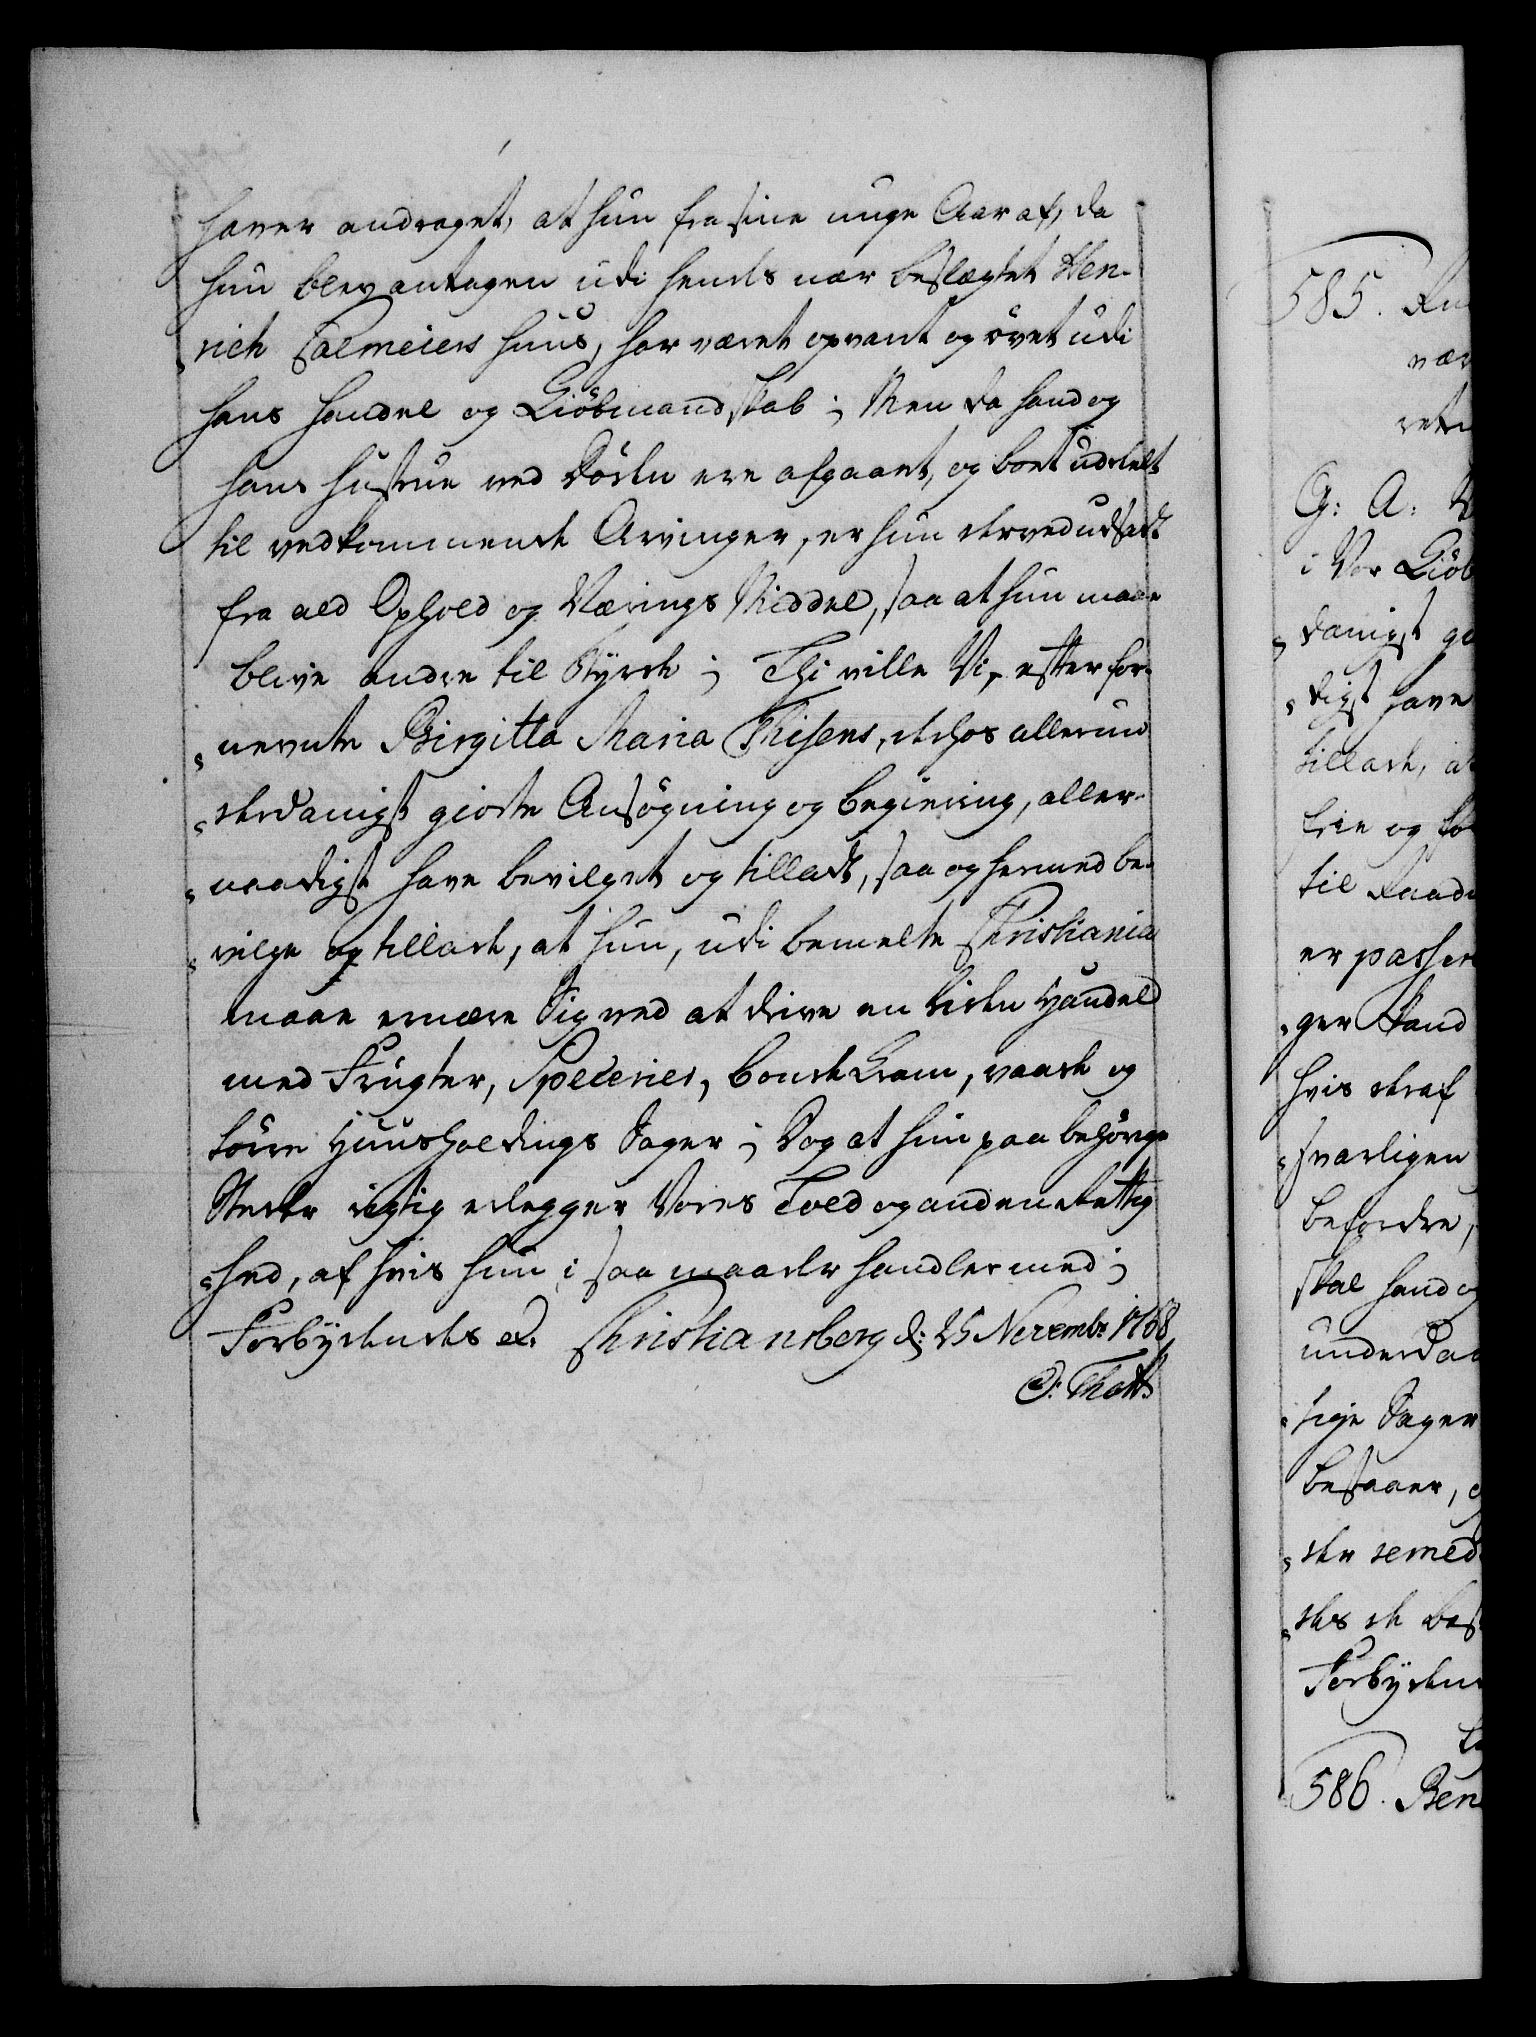 haver andraget, at hun fra sine unge Aar af, da
hun blev antagen udi hendes nær beslægtet Hen-
rich Palmeiers Huus, har været opvant og övet udi
hans Handel og Kiöbmandskab; Men da hand og
hans Hustrue ved Döden ere afgaaet, og boet udeelt
til vedkommende Arvinger, er hun derved udsadt
fra ald Ophold og Nærings Middel, saa at hun maae
blive andre til Byrde; Thi ville Vi, efter for-
nevnte Birgitta Maria Thisens, derhos allerun
derdanigst giorde Ansögning og begiering, aller-
naadigst have bevilget og tilladt, saa og hermed be-
vilge og tillade, at hun, udi bemelte Christiania
maae ernære Sig ved at drive en liden Handel
med Frugter, Specerier, bonde Kram, vaade og
törre Huusholdings Sager; Dog at hun paa behörige
Steder rigtig erlegger Vores Told og anden rettig
hed, af hvis hun i saa maader handler med;
Forbydendes &. Christiansberg d: 25 Novembr 1768
O: Thott
585.
i Vor Kiöb
danigst
digst have
tillade, at
til Raad
er passer
ger Stand
hvis
svarligen
befordre,
skal hand og
underda
lige Sager
bestaaer,
der
Forbyden
586. Ben